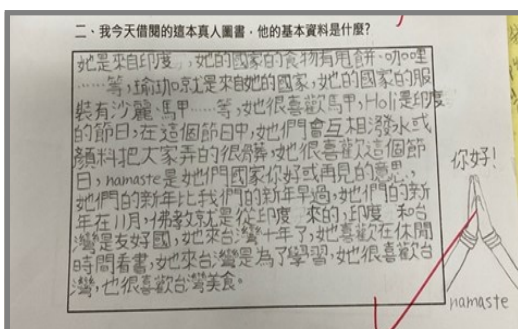 二、我今天借閱的這本真人圖書，他的基本資料是什麼?
她是來自印度，她的國家的食物有甩餅、咖哩
……等，瑜珈就是來自她的國家，她的國家的服
裝有沙麗、馬甲……等，她很喜歡馬甲，Holi是印度
的節日，在這個節日中，她們會互相潑水或
顏料把大家弄的很髒，她很喜歡這個節
日，namaste是她們國家你好或再見的意思，
她們的新年比我們的新年早過，她們的新
年在11月，佛教就是從印度 來的，印度 和台
灣是友好國，她來台灣十年了，她喜歡在休閒
時間看書，她來台灣是為了學習，她很喜歡台
灣，也很喜歡台灣美食。
你好！
namaste